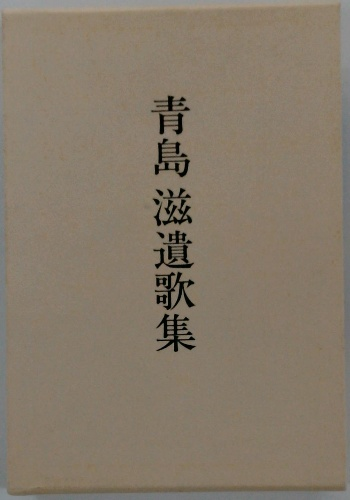 青島 滋遺歌集